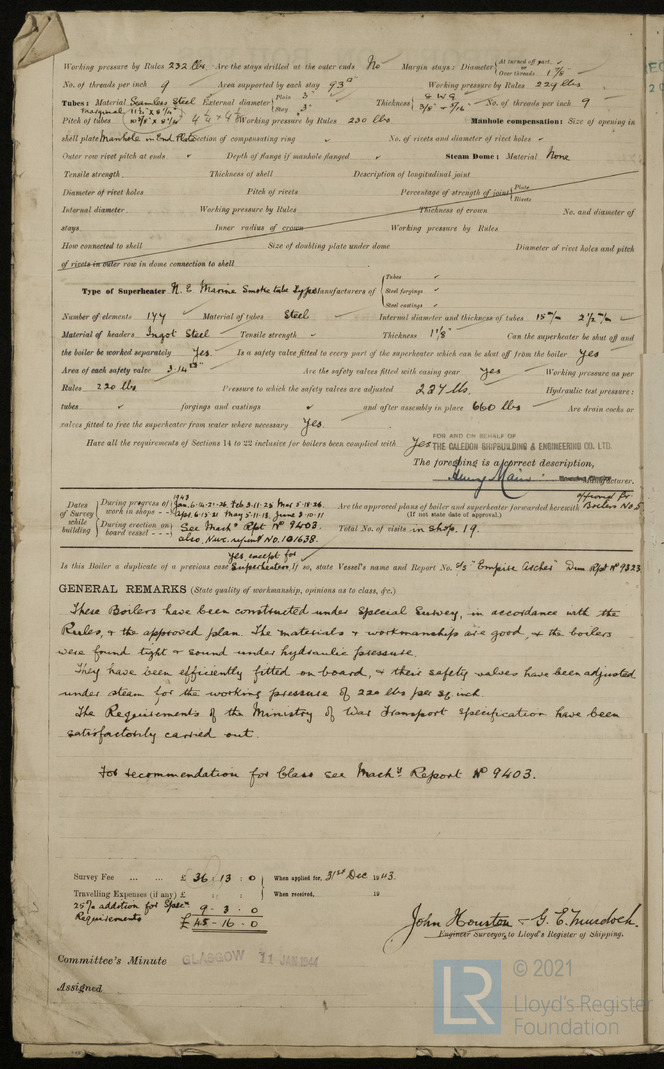 Working pressure by Rules 232 lbs. Are the stays drilled at the outer ends No Margin stays: Diameter { At turned off part, or Over threads 1 7/8"
No. of threads per inch 9 Area supported by each stay 93 □" Working pressure by Rules 229 lbs
Tubes: Material Seamless Steel External diameter { Plain 3" Stay 3" Thickness { 8 W G 3/8" + 5/16" No. of threads per inch 9
Pitch of tubes 4 1/4 x 4 1/2 Working pressure by Rules 230 lbs Manhole compensation: Size of opening in
shell plate Manhole in End Plate Section of compensating ring No. of rivets and diameter of rivet holes
Outer row rivet pitch at ends Depth of flange if manhole flanged Steam Dome: Material None
Tensile strength Thickness of shell Description of longitudinal joint
Diameter of rivet holes Pitch of rivets Percentage of strength of joint { Plate Rivets
Internal diameter Working pressure by Rules Thickness of crown No. and diameter of
stays Inner radius of crown Working pressure by Rules
How connected to shell Size of doubling plate under dome Diameter of rivet holes and pitch
of rivets in outer row in dome connection to shell
Type of Superheater N. E. Marine Smoke tube Type Manufacturers of { Tubes Steel forgings Steel castings
Number of elements 144 Material of tubes Steel Internal diameter and thickness of tubes 15 m/m 2 1/2 m/m
Material of headers Ingot Steel Tensile strength Thickness 1 1/8" Can the superheater be shut off and
the boiler be worked separately Yes. Is a safety valve fitted to every part of the superheater which can be shut off from the boiler Yes
Area of each safety valve 3.14 □" Are the safety valves fitted with easing gear Yes Working pressure as per
Rules 220 lbs Pressure to which the safety valves are adjusted 227 lbs. Hydraulic test pressure:
tubes forgings and castings and after assembly in place 660 lbs Are drain cocks or
valves fitted to free the superheater from water where necessary Yes.
Have all the requirements of Sections 14 to 22 inclusive for boilers been complied with Yes
FOR AND ON BEHALF OF
THE CALEDON SHIPBUILDING & ENGINEERING CO. LTD.
The foregoing is a correct description,
Henry Main Manufacturer.
Dates of Survey while building { During progress of work in shops - - 1943 Jan. 6.14.21.26. Feb. 3.11.25 Mar 5.18.26. Apr. 6.15.21 May 5.11.13. June 3.10.11
Are the approved plans of boiler and superheater forwarded herewith approved for Boilers No 5
(If not state date of approval.)
During erection on board vessel - - - See Machy Rpt No 9403. also, Nwc. report No. 101638. Total No. of visits in shop. 19.
Is this Boiler a duplicate of a previous case Yes except for Superheaters If so, state Vessel's name and Report No. S/S "Empire Archer" Dun Rpt No 9323
GENERAL REMARKS (State quality of workmanship, opinions as to class, &c.)
These Boilers have been constructed under Special Survey, in accordance with the
Rules, & the approved plan. The materials & workmanship are good, & the boilers
were found tight & sound under hydraulic pressure.
They have been efficiently fitted on board, & their safety valves have been adjusted
under steam for the working pressure of 220 lbs per sq inch
The Requirements of the Ministry of War Transport Specification have been
satisfactorily carried out.
For recommendation for Class see Machy Report No 9403.
Survey Fee ... ... £ 36 : 13 : 0 When applied for, 31st Dec 1943.
Travelling Expenses (if any) £ : : When received, 19
25% addition for Spec. Requirements 9 - 3 - 0
£ 45 - 16 - 0
John Houston & G. E. Murdoch.
Engineer Surveyor, to Lloyd's Register of Shipping.
Committee's Minute GLASGOW 11 JAN 1944
Assigned
LR © 2021
Lloyd's Register
Foundation